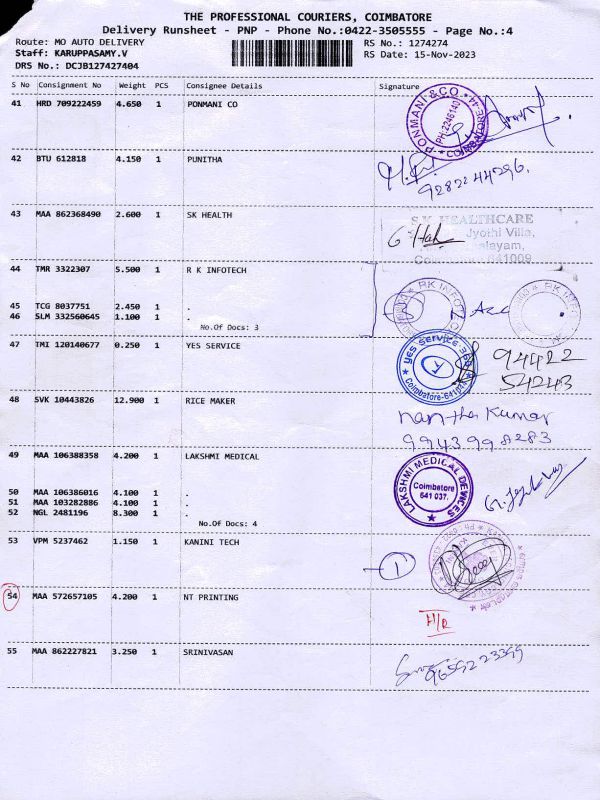 THE PROFESSIONAL COURIERS, COIMBATORE
Delivery Runsheet - PNP - Phone No.:0422-3505555 - Page No.:4
Route: MO AUTO DELIVERY RS No.: 1274274
Staff: KARUPPASAMY.V RS Date: 15-Nov-2023
DRS No.: DCJB127427404
S No Consignment No Weight PCS Consignee Details Signature
41 HRD 709222459 4.650 1 PONMANI CO
PONMANI & CO. PH:2246140 COIMBATORE-44
42 BTU 612818 4.150 1 PUNITHA
9282244296.
43 MAA 862368490 2.600 1 SK HEALTH
S.K HEALTHCARE
Jyothi Villa,
alayam,
641009
44 TMR 3322307 5.500 1 R K INFOTECH
RK INFOT
45 TCG 8037751 2.450 1 .
46 SLM 332560645 1.100 1 .
No.Of Docs: 3
47 TMI 120140677 0.250 1 YES SERVICE
Coimbatore-641
94422
54243
48 SVK 10443826 12.900 1 RICE MAKER
nantha kumar
9943998283
49 MAA 106388358 4.200 1 LAKSHMI MEDICAL
LAKSHMI MEDICAL DEVICES
Coimbatore
641 037.
50 MAA 106386016 4.100 1 .
51 MAA 103282886 4.100 1 .
52 NGL 2481196 8.300 1 .
No.Of Docs: 4
53 VPM 5237462 1.150 1 KANINI TECH
1
54 MAA 572657105 4.200 1 NT PRINTING
55 MAA 862227821 3.250 1 SRINIVASAN
9659223399